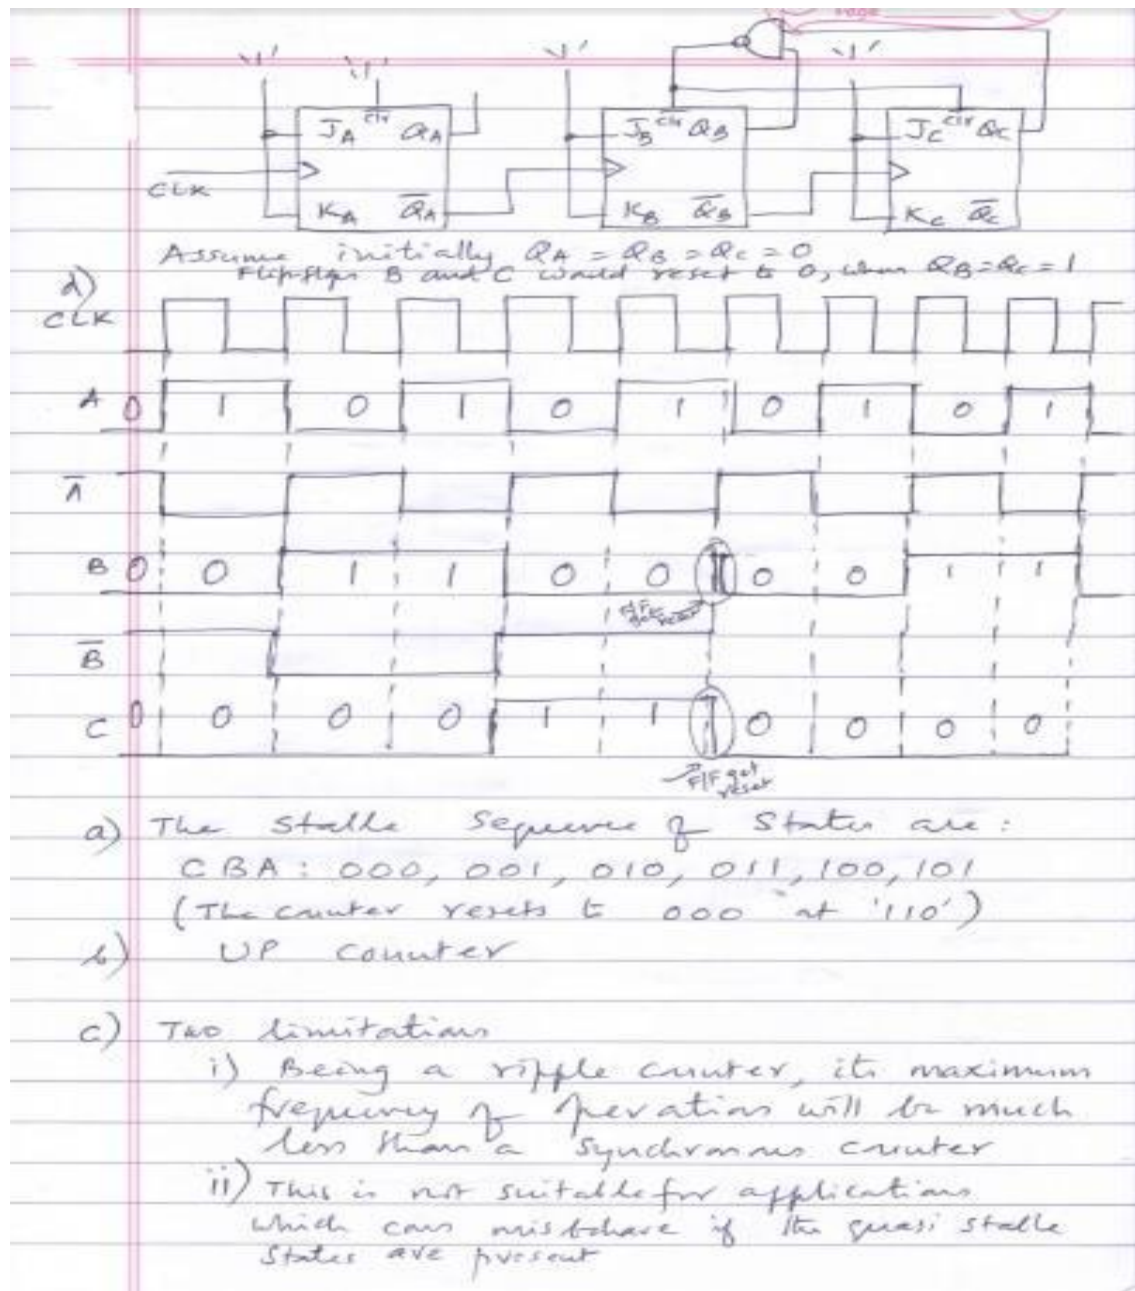 Page
'1' '1' '1' '1'
J_A C̅l̅r̅ Q_A J_B C̅l̅r̅ Q_B J_C C̅l̅r̅ Q_C
CLK
K_A Q̅_A K_B Q̅_B K_C Q̅_C
Assume initially Q_A = Q_B = Q_C = 0
Flipflops B and C would reset to 0, when Q_B=Q_C=1
d)
CLK
A 0 1 0 1 0 1 0 1 0 1
A̅
B 0 0 1 1 0 0 0 0 1 1
F/F get reset
B̅
C 0 0 0 0 1 1 0 0 0 0
F/F get
reset
a) The stable sequence of states are:
CBA: 000, 001, 010, 011, 100, 101
(The counter resets to 000 at '110')
b) UP counter
c) Two limitations
i) Being a ripple counter, its maximum
frequency of operation will be much
less than a synchronous counter
ii) This is not suitable for applications
which can misbehave if the quasi stable
states are present